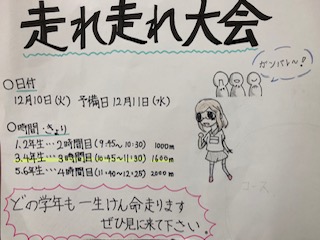 走れ走れ大会
ガンバレ〜!
○日付
12月10日(火) 予備日12月11日(水)
○時間・きょり
1.2年生…2時間目(9:45〜10:30) 1000m
3.4年生…3時間目(10:45〜11:30) 1600m
5.6年生…4時間目(11:40〜12:25) 2000m
コース
どの学年も一生けん命走ります
ぜひ見に来て下さい!